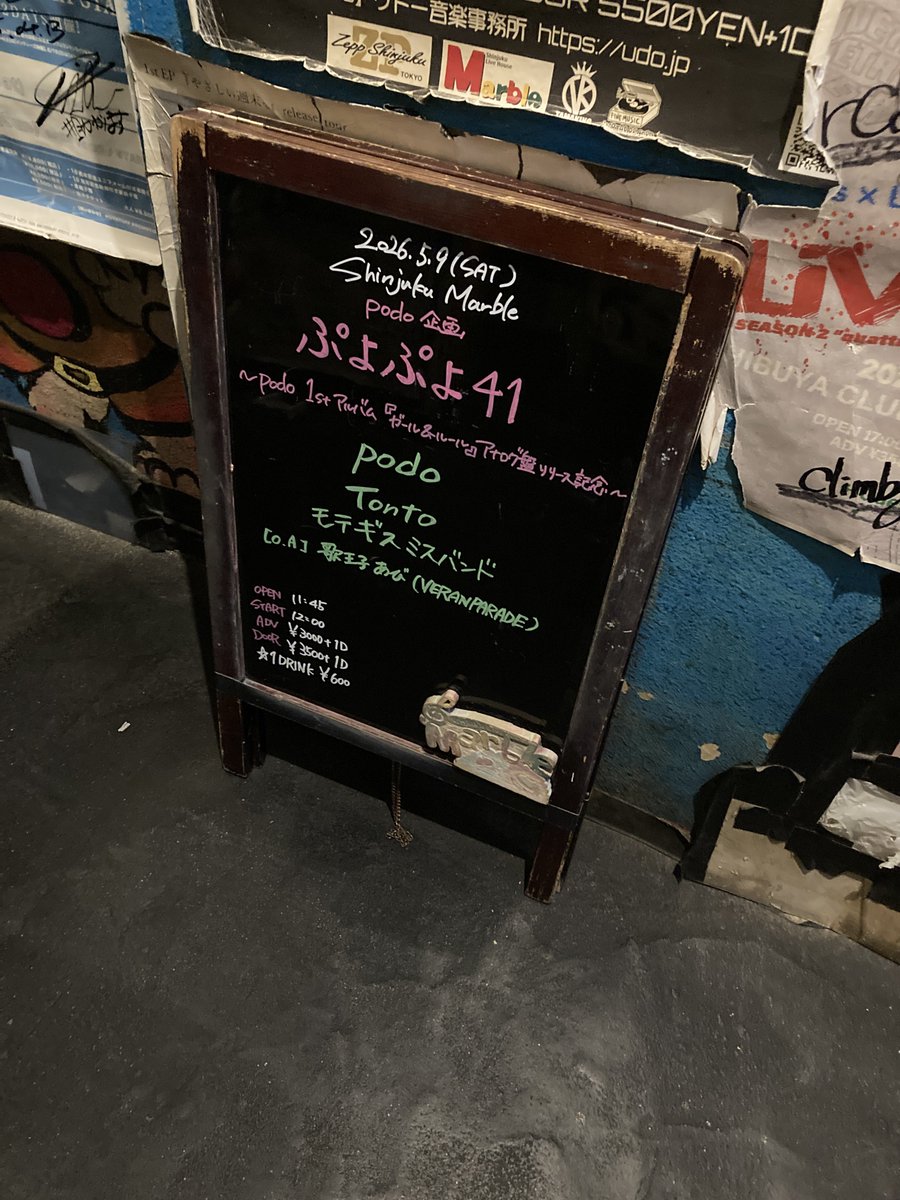 ドー音楽事務所 https://udo.jp
5500YEN+1D
Zepp Shinjuku
TOKYO
Shinjuku
Live House
Marble
1st EP
release tour
2026.5.9(SAT)
Shinjuku Marble
podo 企画
ぷよぷよ41
~podo 1stアルバム『ガール&ルール』アナログ盤リリース記念~
podo
Tonto
モテギスミスバンド
[O.A] 歌王子あび(VERANPARADE)
OPEN 11:45
START 12:00
ADV ¥3000+1D
DOOR ¥3500+1D
☆1DRINK ¥600
Marble
LIV
SEASON 2
HIBUYA CLU
OPEN 17:0
ADV ¥3
Climb